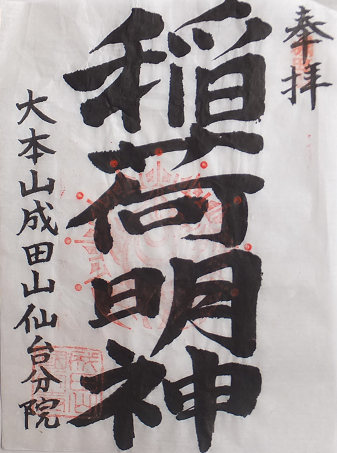 奉拝
稲荷明神
大本山成田山仙台分院